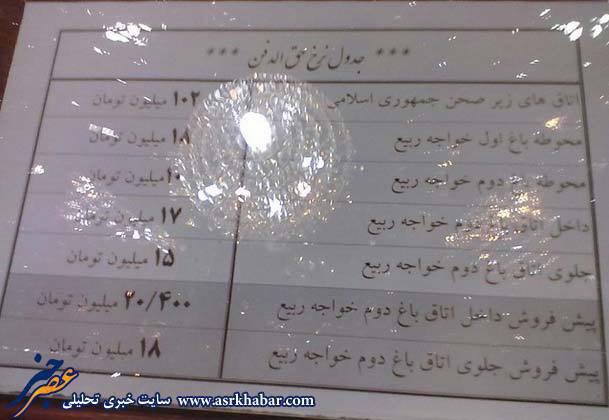 *** جدول نرخ حق الدفن ***
اتاق های زیر صحن جمهوری اسلامی ۱۰۲ میلیون تومان
محوطه باغ اول خواجه ربیع ۱۸ میلیون تومان
محوطه باغ دوم خواجه ربیع میلیون تومان
داخل اتاق باغ دوم خواجه ربیع ۱۷ میلیون تومان
جلوی اتاق باغ دوم خواجه ربیع ۱۵ میلیون تومان
پیش فروش داخل اتاق باغ دوم خواجه ربیع ۲۰/۴۰۰ میلیون تومان
پیش فروش جلوی اتاق باغ دوم خواجه ربیع ۱۸ میلیون تومان
عصر خبر سایت خبری تحلیلی www.asrkhabar.com